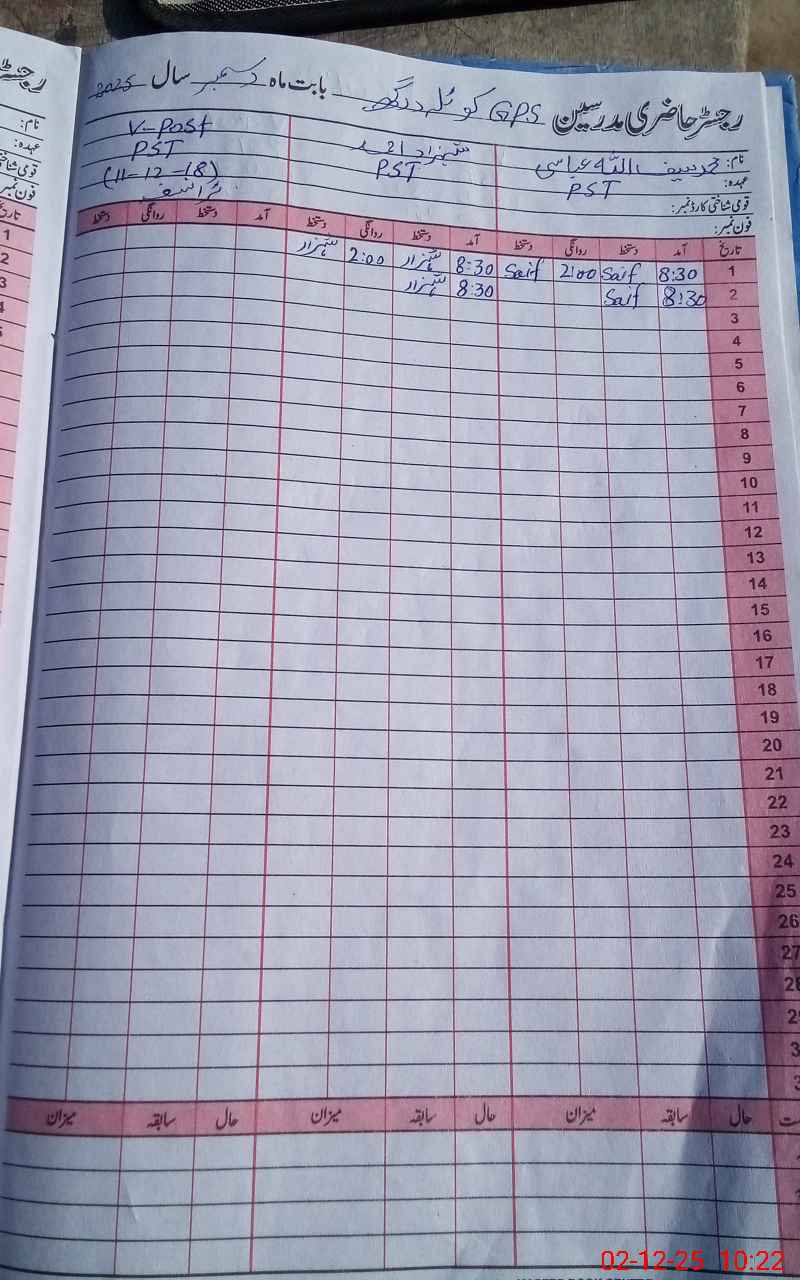 رجسٹر حاضری مدرسین GPS کوٹلہ دیگھ بابت ماہ دسمبر سال 2025
نام: محمد سیف اللہ عباسی
عہدہ: PST
قومی شناختی کارڈ نمبر:
فون نمبر:
شہزاد احمد
PST
V-Post
PST
(11-12-18)
تاریخ آمد دستخط روانگی دستخط آمد دستخط روانگی دستخط آمد دستخط روانگی دستخط
1 8:30 Saif 2:00 Saif 8:30 شہزاد 2:00 شہزاد
2 8:30 Saif 8:30 شہزاد
3
4
5
6
7
8
9
10
11
12
13
14
15
16
17
18
19
20
21
22
23
24
25
26
27
28
حال سابقہ میزان حال سابقہ میزان حال سابقہ میزان
02-12-25 10:22